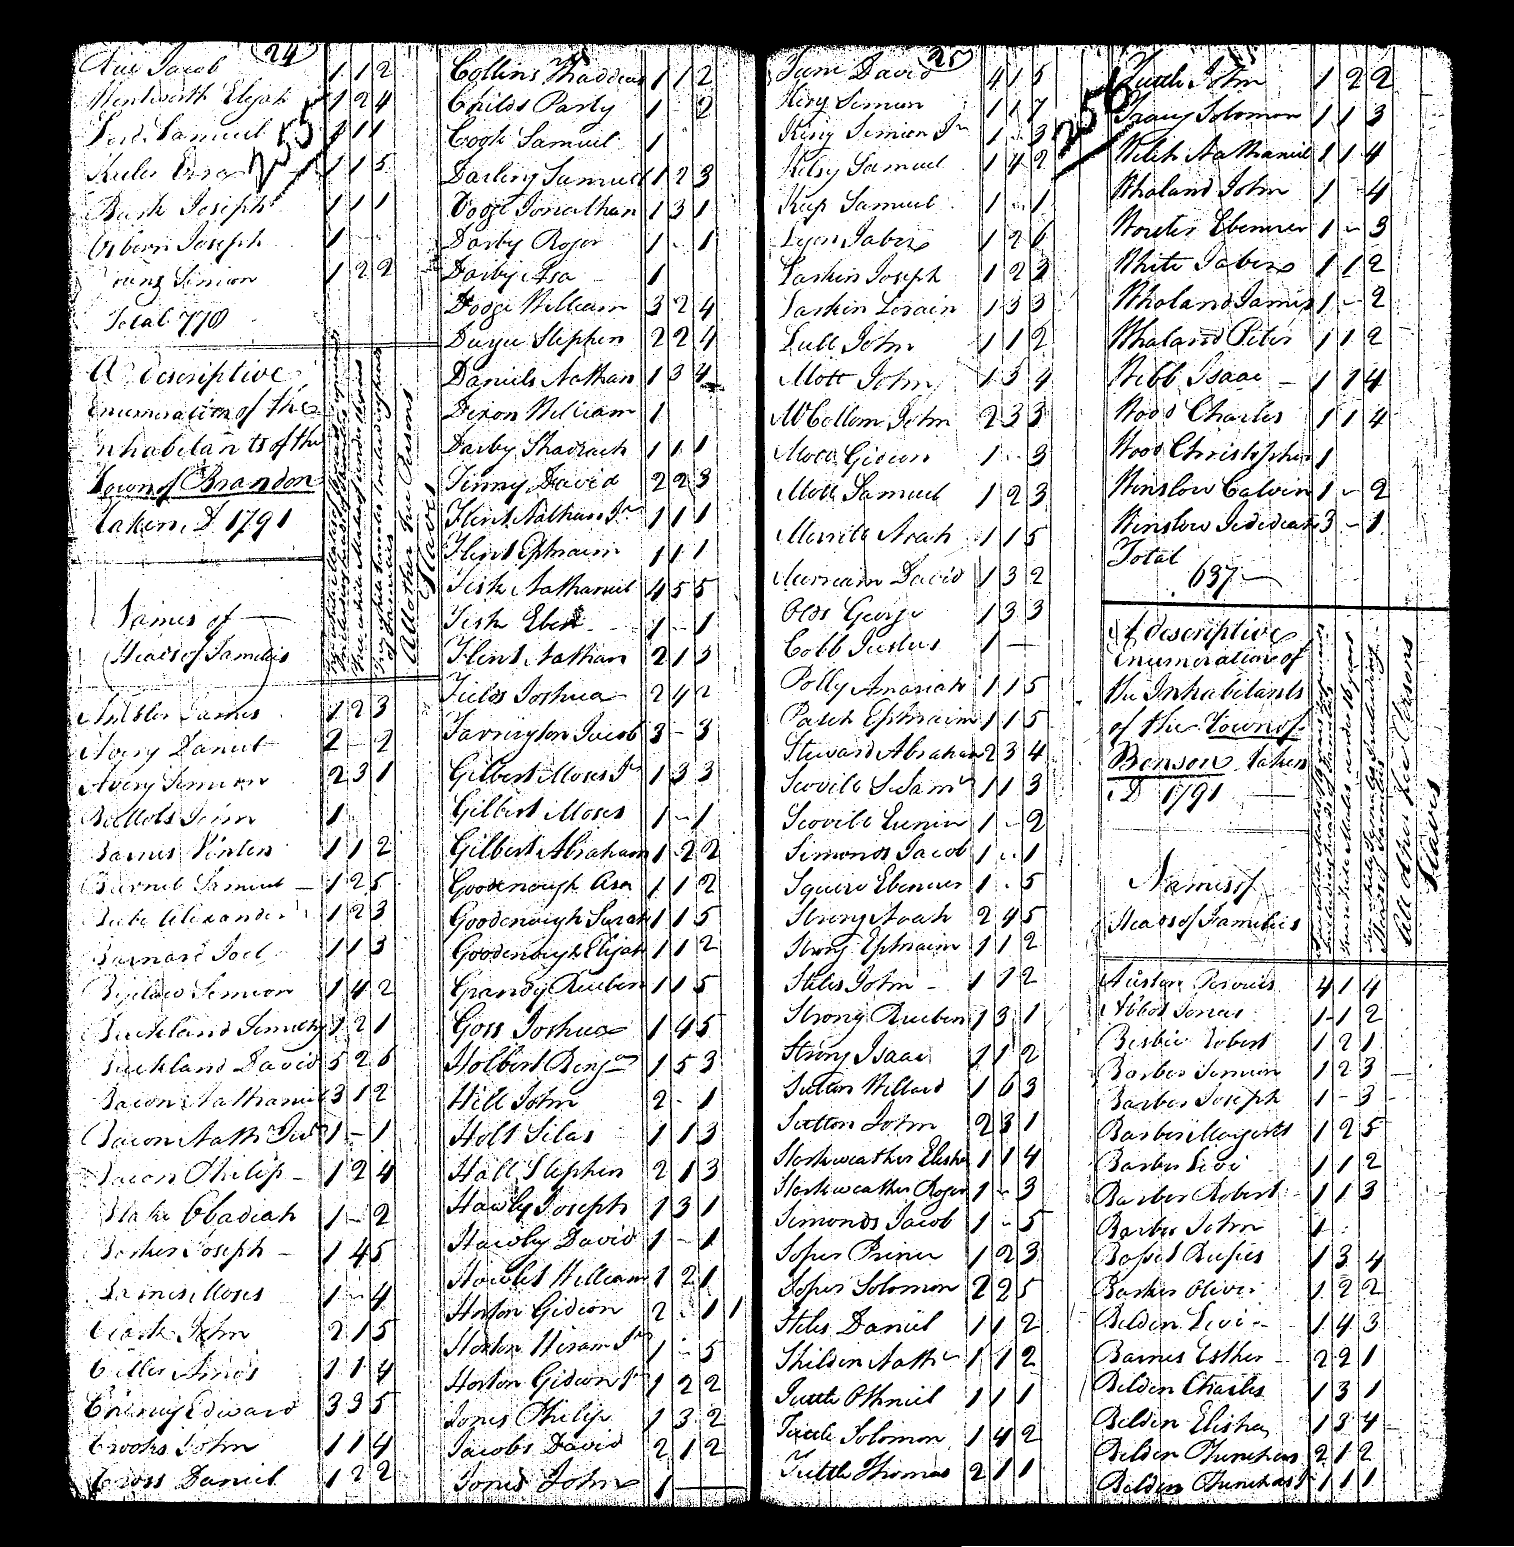 24
Jacob 1 1 2
Wentworth Elijah 1 2 4
Samuel 1 1
255
1 1 5
Bush Joseph 1 1 1
Osborn Joseph 1
Simeon 1 2 2
Total 770
A descriptive
enumeration of the
Inhabitants of the
Town of Brandon
Taken D 1791
Free white Males of 16 years & upwards including heads of Families
Free white Males under 16 years
Free white Females including heads of Families
All other free Persons
Slaves
Names of
Heads of Families
James 1 2 3
Avery Daniel 2 - 2
Avery Simeon 2 3 1
1
Barnes 1 1 2
Samuel 1 2 5
Alexander 1 2 3
Barnard Joel 1 1 3
Bigelow Simeon 1 4 2
Buckland Timothy 1 2 1
Buckland David 5 2 6
Bacon Nathaniel 3 1 2
Bacon Nath Jur 1 - 1
Bacon Philip - 1 2 4
Blake Obadiah 1 - 2
Barker Joseph - 1 4 5
Barnes Moses 1 - 4
Clark John 2 1 5
Cutler Amos 1 1 4
Cheney Edward 3 3 5
Crooks John 1 1 4
Cross Daniel 1 2 2
Collins Thaddeus 1 1 2
Childs Party 1 - 2
Samuel 1
Darling Samuel 1 2 3
Dodge Jonathan 1 3 1
Darby Roger 1 - 1
Darby Asa 1
Dodge William 3 2 4
Stephen 2 2 4
Daniels Nathan 1 3 4
Dixon William 1
Darby Shadrach 1 1 1
Finny David 2 2 3
Flint Nathan Jr 1 1 1
Flint Ephraim 1 1 1
Fisk Nathaniel 4 5 5
Fisk Eben 1 - 1
Flint Nathan 2 1 3
Fields Joshua 2 4 2
Farrington Jacob 3 - 3
Gilbert Moses Jr 1 3 3
Gilbert Moses 1 - 1
Gilbert Abraham 1 2 2
Goodenough Asa 1 1 2
Goodenough Sarah 1 1 5
Goodenough Elijah 1 1 2
Grandy Reuben 1 1 5
Goss Joshua 1 4 5
Holbert Benjn 1 5 3
Hill John 2 - 1
Holt Silas 1 1 3
Hall Stephen 2 1 3
Hawly Joseph 1 3 1
Hawly David 1 - 1
William 1 2 1
Horton Gideon 2 - 1 1
Horton Hiram Jr 1 - 5
Horton Gideon Jr 1 2 2
Jones Philip 1 3 2
Jacobs David 2 1 2
Jones John 1
25
David 4 1 5
King Simeon 1 1 7
King Simeon Jr 1 - 3
256
Kelsy Samuel 1 4 2
Samuel 1 - 1
Lyon Jabez 1 2 6
Larkin Joseph 1 2 3
Larkin Lorain 1 3 3
Lull John 1 1 2
Mott John 1 3 4
McCollom John 2 3 3
Mott Gideon 1 - 3
Mott Samuel 1 2 3
Merrit Noah 1 1 5
Merriam David 1 3 2
Olds George 1 3 3
Cobb Justus 1 -
Polly Amasiah 1 1 5
Patch Ephraim 1 1 5
Steward Abraham 2 3 4
Scovile 1 1 3
Scovile 1 - 2
Simonds Jacob 1 - 1
Squire Ebenezer 1 - 5
Strong Noah 2 4 5
Strong Ephraim 1 1 2
Stiles John - 1 1 2
Strong Reuben 1 3 1
Strong Isaac 1 1 2
Sutton Willard 1 6 3
Sutton John 2 3 1
Starkweather Elisha 1 1 4
Starkweather Roger 1 - 3
Simonds Jacob 1 - 5
Soper 1 2 3
Soper Solomon 2 2 5
Stiles Daniel 1 1 2
Shilden Nathl 1 1 2
Tuttle Othniel 1 1 1
Tuttle Solomon 1 4 2
Tuttle Thomas 2 1 1
Tuttle John 1 2 2
Tracy Solomon 1 1 3
Welch Nathaniel 1 1 4
Whaland John 1 - 4
Ebenezer 1 - 3
White Jabez 1 1 2
Whaland James 1 - 2
Whaland Peter 1 1 2
Webb Isaac - 1 1 4
Wood Charles 1 1 4
Wood Christopher 1
Winslow Calvin 1 - 2
Winslow Jedediah 3 - 1
Total
637
A descriptive
Enumeration of
the Inhabitants
of the Town of
Benson taken
D 1791
Free white Males of 16 years & upwards including heads of Families
Free white Males under 16 years
Free white Females including Heads of Families
All other free Persons
Slaves
Names of
Heads of Families
Austin 4 1 4
Abbot Jonas 1 1 2
Robert 1 2 1
Barber Simeon 1 2 3
Barber Joseph 1 - 3
Barber 1 2 5
Barber Levi 1 1 2
Barber Robert 1 1 3
Barber John 1
Rufus 1 3 4
Barker Oliver 1 2 2
Belden Levi - 1 4 3
Barnes Esther - 2 2 1
Belden Charles 1 3 1
Belden Elisha 1 3 4
Belden 2 1 2
Belden 1 1 1